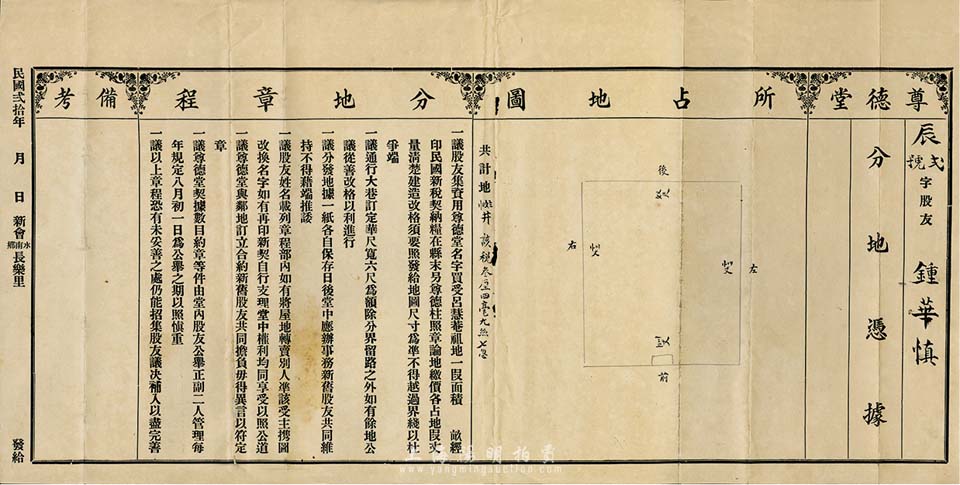 尊德堂
辰字弍號股友 鍾華慎
分地憑據
所占地圖
後
左
右
前
共計地
該稅叁
四毫九絲七忽
分地章程
一議股友集資用尊德堂名字買受呂慧菴祖地一段面積 畝經
印民國新稅契納糧在縣末另尊德柱照章論地繳價各占地段丈
量清楚建造改格須要照發給地圖尺寸為準不得越過界綫以杜
爭端
一議通行大巷訂定華尺寬六尺為額除分界留路之外如有餘地公
議從善改格以利進行
一議分發地據一紙各自保存日後堂中應辦事務新舊股友共同維
持不得藉端推諉
一議股友姓名載列章程部內如有將屋地轉賣別人準該受主携圖
改換名字如有再印新契自行支理堂中權利均同享受以照公道
一議尊德堂與鄰地訂立合約新舊股友共同擔負毋得異言以符定
章
一議尊德堂契據數目約章等件由堂內股友公舉正副二人管理每
年規定八月初一日為公舉之期以照慎重
一議以上章程恐有未妥善之處仍能招集股友議決補入以盡完善
備考
民國弍拾年 月 日 新會水南鄉長樂里 發給
上海陽明拍賣
www.yangmingauction.com